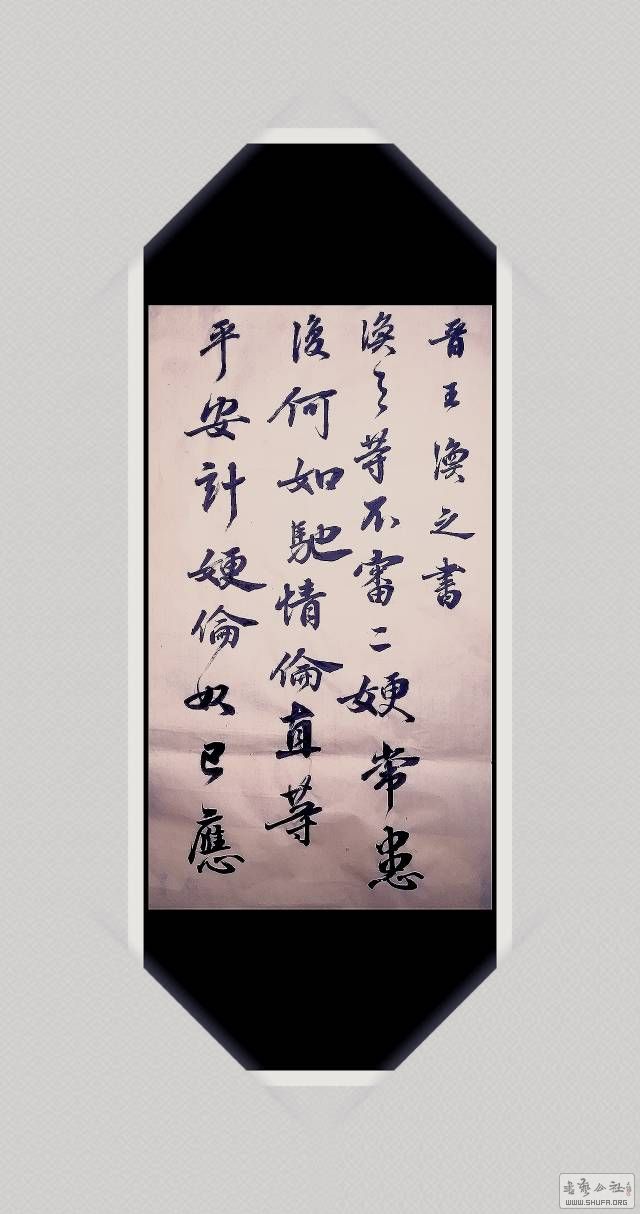 晋王渙之書
渙之等不審二嫂常患
復何如馳情倫直等
平安計嫂倫奴已應
书艺公社
WWW.SHUFA.ORG